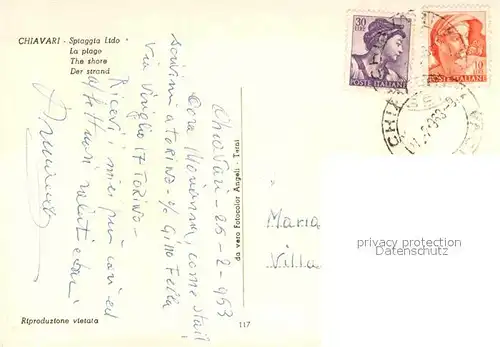 CHIAVARI - Spiaggia Lido
La plage
The shore
Der strand
30
LIRE
POSTE ITALIANE
10
POSTE ITALIANE
Chiavari - 25-2-963
Cara Marianna, come stai?
scrivimi a TORINO - c/o GINO
Via Virgilio 17 TORINO -
Ricevi i miei più cari ed
affettuosi saluti e baci
da vero Fotocolor Angeli - Terni
Maria
Villa
privacy protection
Datenschutz
Riproduzione vietata
117